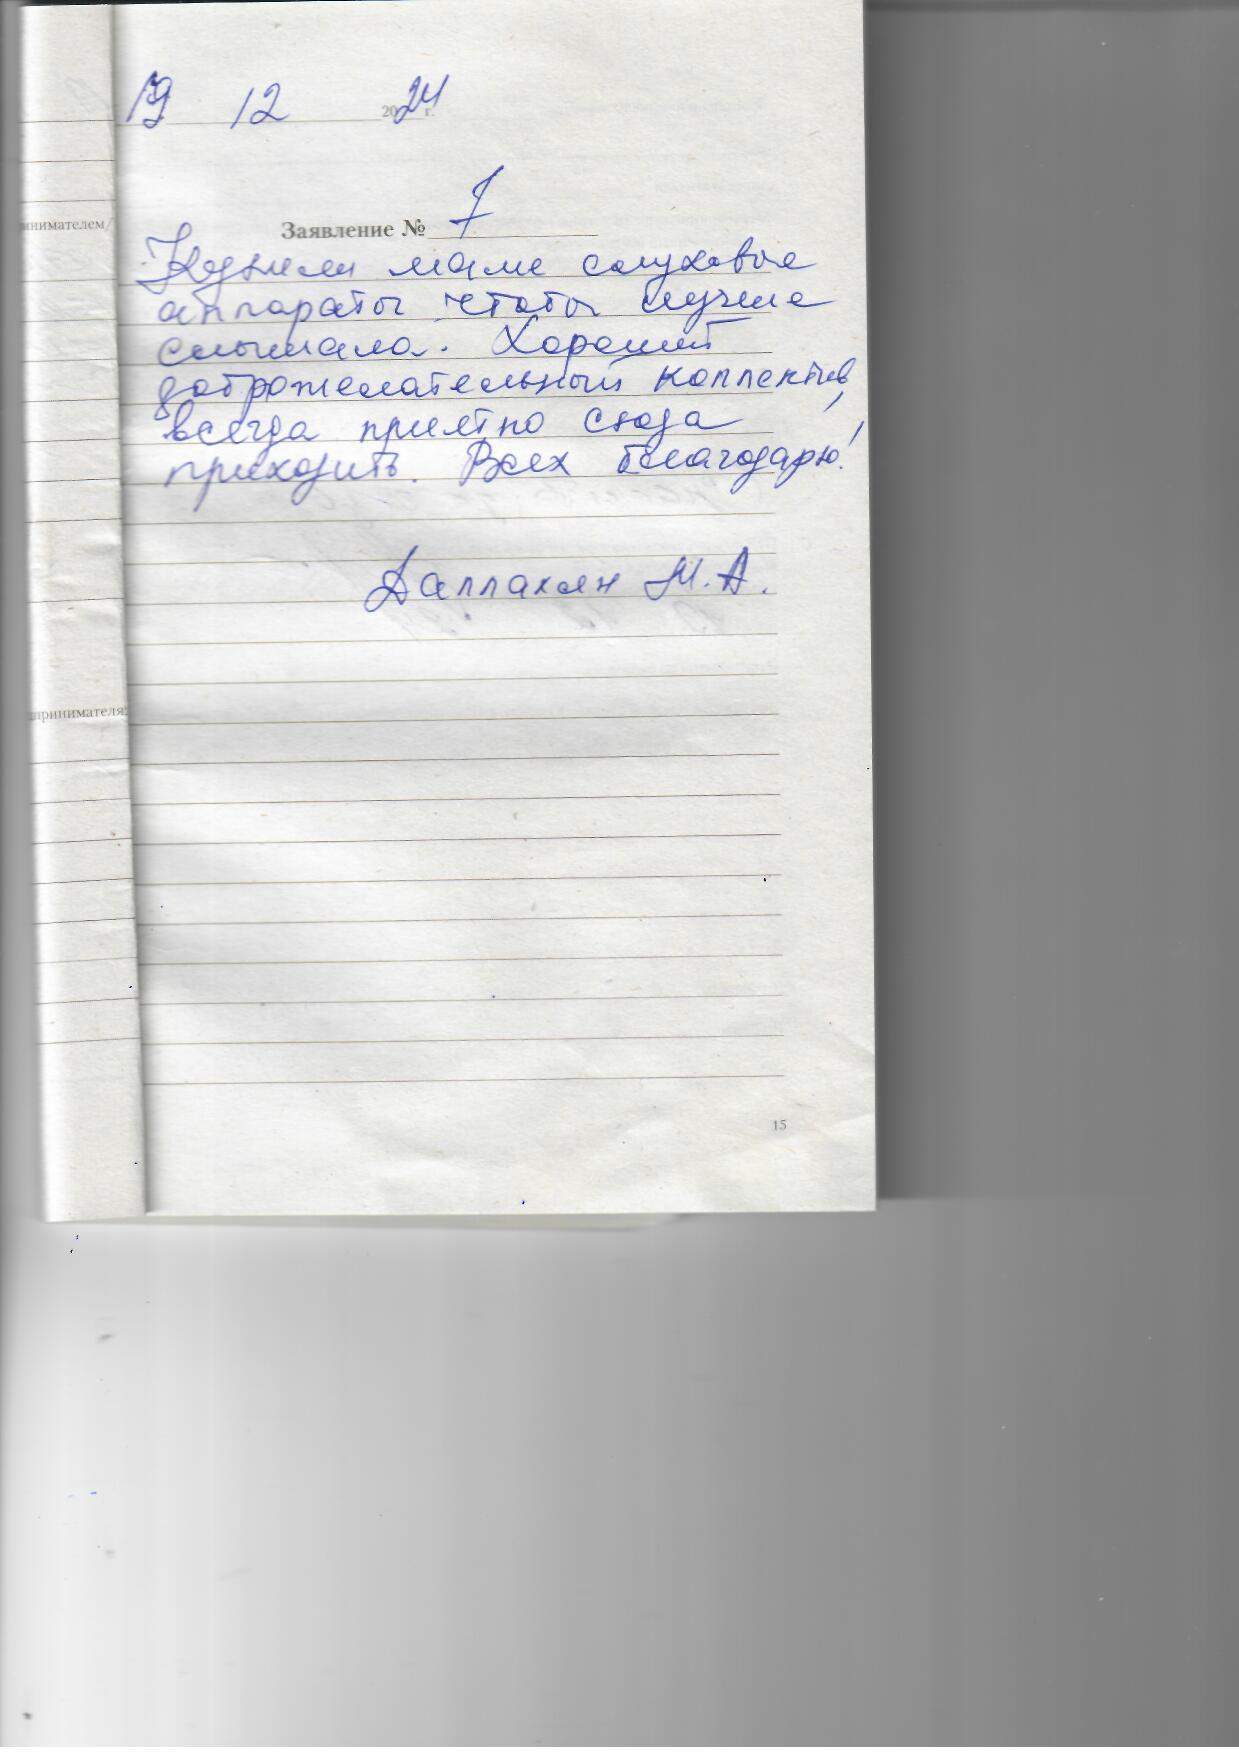 19 12 2024 г.
Заявление № 7
инимателем/
Купили маме слуховые
аппараты чтобы лучше
слышала. Хороший
доброжелательный коллектив,
всегда приятно сюда
приходить. Всех благодарю!
Даллакян М.А.
принимателя:
15